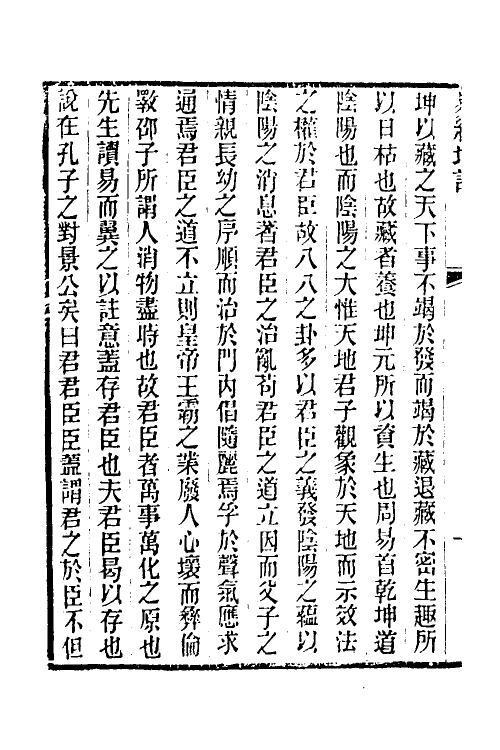 坤以藏之天下事不竭於發而竭於藏退藏不密生趣所
以日枯也故藏者養也坤元所以資生也周易首乾坤道
陰陽也而陰陽之大惟天地君子觀象於天地而示效法
之權於君臣故八八之卦多以君臣之義發陰陽之蘊以
陰陽之消息著君臣之治亂苟君臣之道立因而父子之
情親長幼之序順而治於門內倡隨麗焉孚於聲氣應求
通焉君臣之道不立則皇帝王霸之業廢人心壞而彝倫
斁邵子所謂人消物盡時也故君臣者萬事萬化之原也
先生讀易而翼之以註意蓋存君臣也夫君臣曷以存也
說在孔子之對景公矣曰君君臣臣蓋謂君之於臣不但